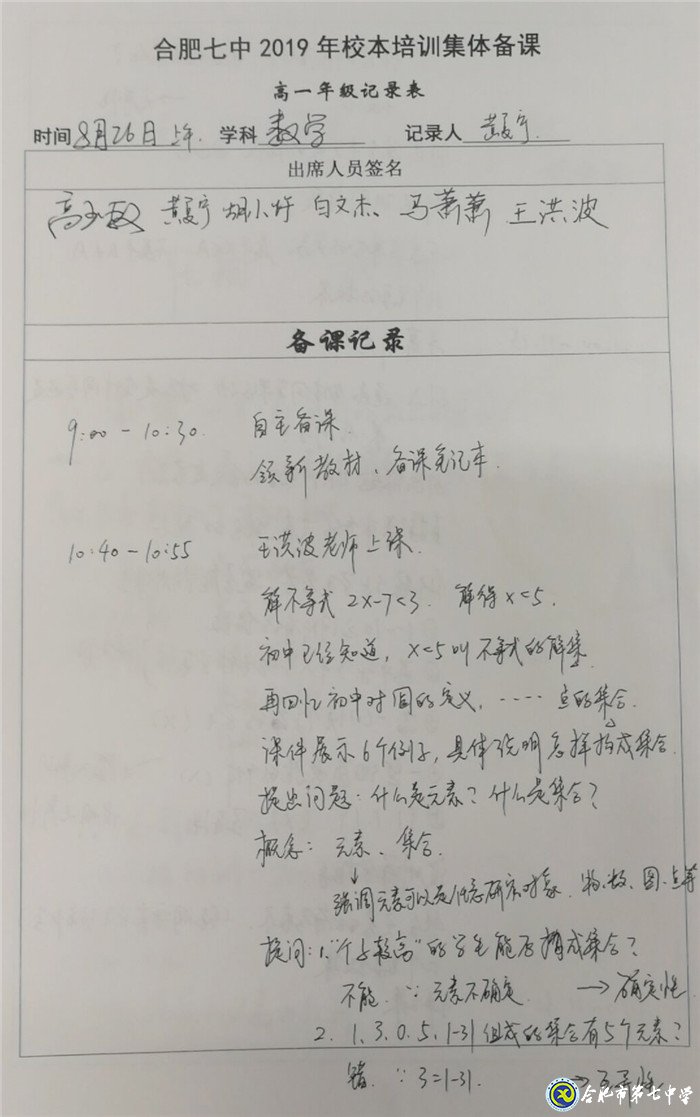 合肥七中 2019 年校本培训集体备课
高一年级记录表
时间 8月26日 上午. 学科 数学 记录人
出席人员签名
白文杰、马萧萧 王洪波
备课记录
9:00 - 10:30. 自主备课.
领新教材、备课笔记本.
10:40 - 10:55 王洪波老师上课.
解不等式 2x-7<3. 解得 x<5.
初中已经知道, x<5 叫不等式的解集.
再回忆初中对圆的定义, ‥‥ 点的集合.
课件展示 6个例子, 具体说明怎样构成集合.
提出问题: 什么是元素? 什么是集合?
概念: 元素、集合.
↓
强调元素可以是任意研究对象. 物、数、图、点等
提问: 1. "个子较高"的学生能否构成集合?
不能. ∵ 元素不确定. → 确定性
2. 1, 3, 0, 5, |-3| 组成的集合有5个元素?
错. ∵ 3=|-3|. → 互异性
合肥市第七中学